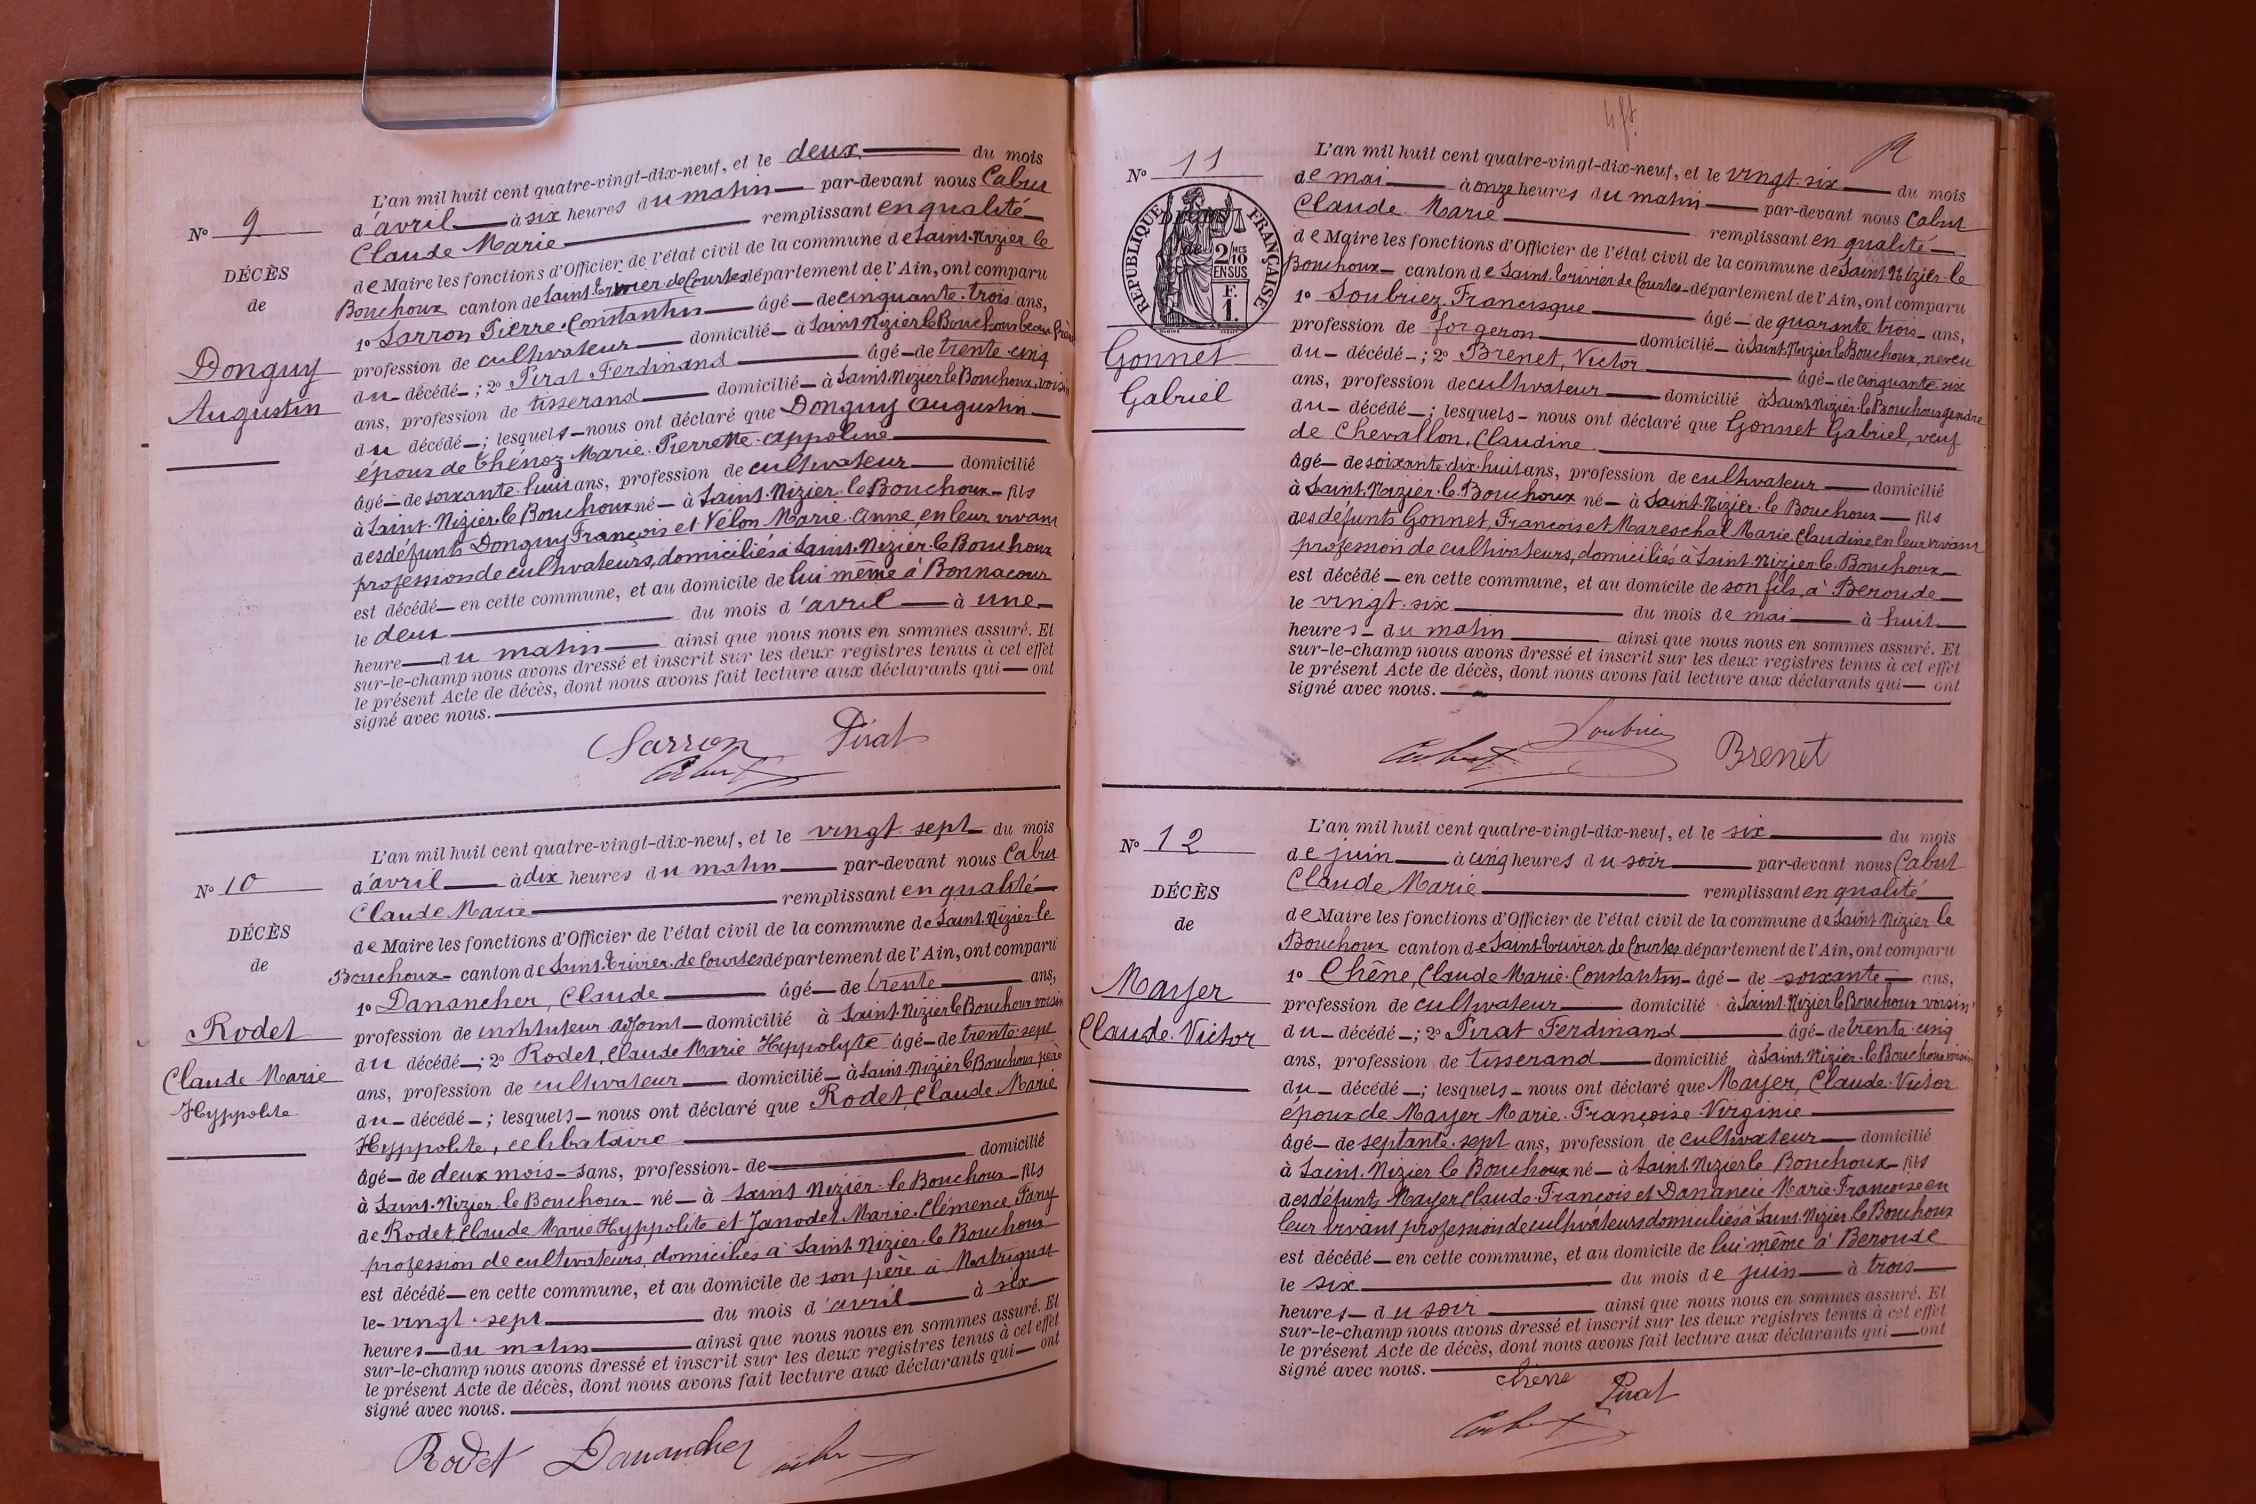 L'an mil huit cent quatre-vingt-dix-neuf, et le deux du mois
d'avril à six heures du matin par-devant nous Cabut
Claude Marie remplissant en qualité
de Maire les fonctions d'Officier de l'état civil de la commune de Saint-Nizier le
Bouchoux canton de Saint-Trivier-de-Courtes département de l'Ain, ont comparu
1º Sarron Pierre Constantin âgé de cinquante-trois ans,
profession de cultivateur domicilié à Saint Nizier le Bouchoux beau frère
du décédé ; 2º Pirat Ferdinand âgé de trente-cinq
ans, profession de tisserand domicilié à Saint-Nizier le Bouchoux, voisin
du décédé ; lesquels nous ont déclaré que Donguy Augustin
époux de Thénoz Marie-Pierrette-Appoline
âgé de soixante-huit ans, profession de cultivateur domicilié
à Saint-Nizier-le Bouchoux né à Saint-Nizier-le Bouchoux fils
des défunts Donguy François et Vélon Marie-Anne, en leur vivant
profession de cultivateurs, domiciliés à Saint-Nizier-le Bouchoux
est décédé en cette commune, et au domicile de lui même à Bonnacour
le deux du mois d'avril à une
heure du matin ainsi que nous nous en sommes assuré. Et
sur-le-champ nous avons dressé et inscrit sur les deux registres tenus à cet effet
le présent Acte de décès, dont nous avons fait lecture aux déclarants qui ont
signé avec nous.
Nº 9
DÉCÈS
de
Donguy
Augustin
Sarron Pirat
Cabut
L'an mil huit cent quatre-vingt-dix-neuf, et le vingt-sept du mois
d'avril à dix heures du matin par-devant nous Cabut
Claude Marie remplissant en qualité
de Maire les fonctions d'Officier de l'état civil de la commune de Saint-Nizier-le
Bouchoux canton de Saint-Trivier-de-Courtes département de l'Ain, ont comparu
1º Danancher, Claude âgé de trente ans,
profession de instituteur adjoint domicilié à Saint-Nizier le Bouchoux voisin
du décédé ; 2º Rodet, Claude Marie Hyppolyte âgé de trente-sept
ans, profession de cultivateur domicilié à Saint-Nizier le Bouchoux, père
du décédé ; lesquels nous ont déclaré que Rodet, Claude Marie
Hyppolite, célibataire
âgé de deux mois sans, profession de domicilié
à Saint-Nizier-le Bouchoux né à Saint Nizier-le Bouchoux fils
de Rodet Claude Marie Hyppolite et Janodet Marie-Clémence Fany
profession de cultivateurs, domiciliés à Saint-Nizier-le Bouchoux
est décédé en cette commune, et au domicile de son père à
le vingt-sept du mois d'avril à six
heures du matin ainsi que nous nous en sommes assuré. Et
sur-le-champ nous avons dressé et inscrit sur les deux registres tenus à cet effet
le présent Acte de décès, dont nous avons fait lecture aux déclarants qui ont
signé avec nous.
Nº 10
DÉCÈS
de
Rodet
Claude Marie
Hyppolite
Rodet Danancher Cabut
Nº 11
RÉPUBLIQUE FRANÇAISE
2/10 EN SUS
F. 1.
Gonnet
Gabriel
L'an mil huit cent quatre-vingt-dix-neuf, et le vingt-six du mois
de mai à onze heures du matin par-devant nous Cabut
Claude Marie remplissant en qualité
de Maire les fonctions d'Officier de l'état civil de la commune de Saint Nizier-le
Bouchoux canton de Saint-Trivier de Courtes département de l'Ain, ont comparu
1º Soubriez Francisque âgé de quarante trois ans,
profession de forgeron domicilié à Saint-Nizier le Bouchoux, neveu
du décédé ; 2º Brenet, Victor âgé de cinquante-six
ans, profession de cultivateur domicilié à Saint-Nizier-le Bouchoux gendre
du décédé ; lesquels nous ont déclaré que Gonnet Gabriel, veuf
de Chevallon, Claudine
âgé de soixante-dix-huit ans, profession de cultivateur domicilié
à Saint-Nizier-le-Bouchoux né à Saint-Nizier-le Bouchoux fils
des défunts Gonnet, François et Mareschal Marie Claudine en leur vivant
profession de cultivateurs, domiciliés à Saint-Nizier-le-Bouchoux
est décédé en cette commune, et au domicile de son fils, à Beroude
le vingt-six du mois de mai à huit
heures du matin ainsi que nous nous en sommes assuré. Et
sur-le-champ nous avons dressé et inscrit sur les deux registres tenus à cet effet
le présent Acte de décès, dont nous avons fait lecture aux déclarants qui ont
signé avec nous.
Cabut Soubriez Brenet
Nº 12
DÉCÈS
de
Mayer
Claude-Victor
L'an mil huit cent quatre-vingt-dix-neuf, et le six du mois
de juin à cinq heures du soir par-devant nous Cabut
Claude Marie remplissant en qualité
de Maire les fonctions d'Officier de l'état civil de la commune de Saint Nizier le
Bouchoux canton de Saint-Trivier de Courtes département de l'Ain, ont comparu
1º Chêne, Claude Marie-Constantin âgé de soixante ans,
profession de cultivateur domicilié à Saint-Nizier le Bouchoux voisin
du décédé ; 2º Pirat Ferdinand âgé de trente-cinq
ans, profession de tisserand domicilié à Saint-Nizier-le Bouchoux voisin
du décédé ; lesquels nous ont déclaré que Mayer, Claude-Victor
époux de Mayer Marie-Françoise-Virginie
âgé de septante-sept ans, profession de cultivateur domicilié
à Saint-Nizier le Bouchoux né à Saint-Nizier le Bouchoux fils
des défunts Mayer Claude-François et Danancie Marie-Françoise en
leur vivant profession de cultivateurs domiciliés à Saint-Nizier le Bouchoux
est décédé en cette commune, et au domicile de lui même à Beroude
le six du mois de juin à trois
heures du soir ainsi que nous nous en sommes assuré. Et
sur-le-champ nous avons dressé et inscrit sur les deux registres tenus à cet effet
le présent Acte de décès, dont nous avons fait lecture aux déclarants qui ont
signé avec nous.
Chêne Pirat
Cabut